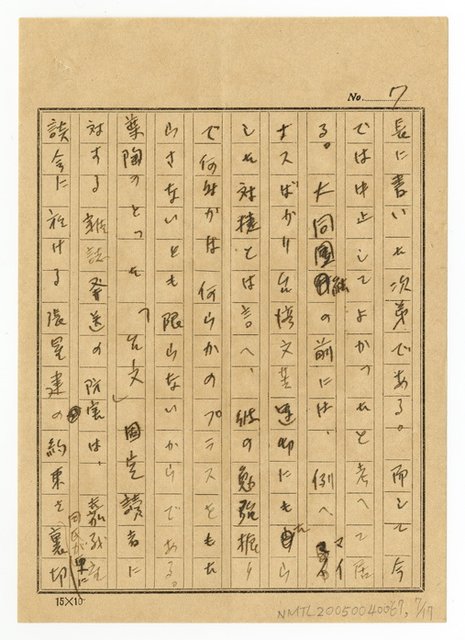 No. 7
長に書いた次第である。而して今
では中止してよかつたと考へて居
る。大同団結の前には、例へマイ
ナスばかり台湾文芸運動にもたら
した対楊とは言へ、彼の勉強振り
で何時かは何らかのプラスをもた
らさないとも限らないからである。
葉陶のとつた「台文」固定読者に
対する雑誌発送の防害は、
談会に於ける張星建の約束を裏切
同氏が早に
15×10
NMTL20050040067, 7/17